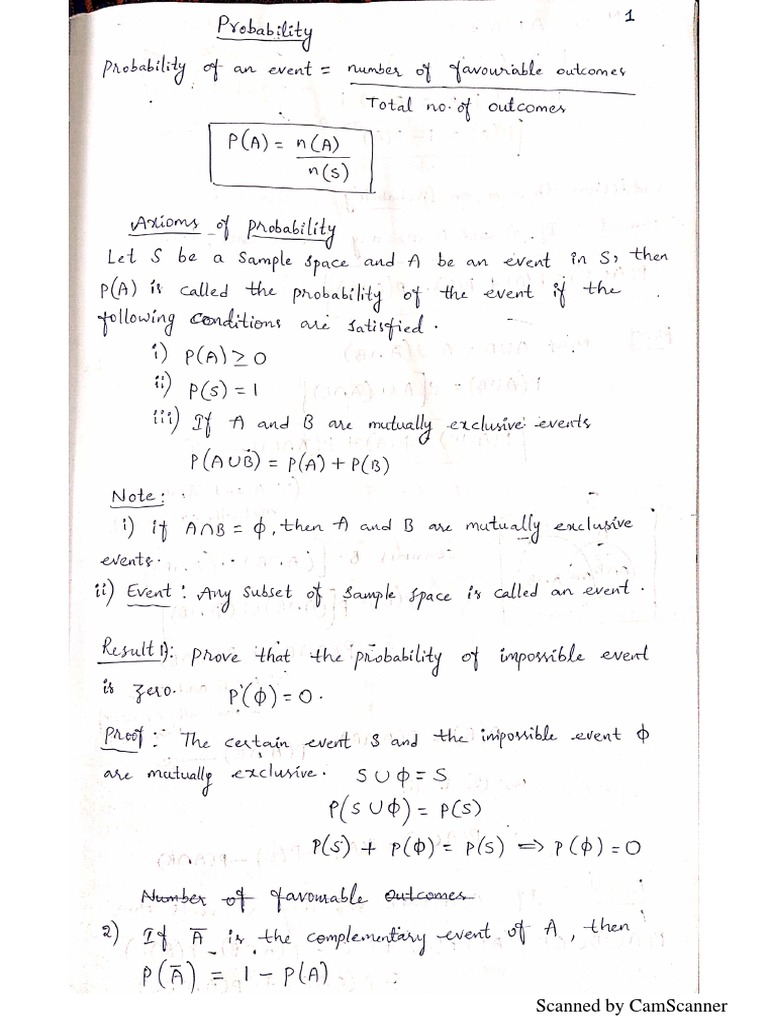 1
Probability
Probability of an event = number of favourable outcomes
Total no. of outcomes
P(A) = n(A)
n(S)
Axioms of Probability
Let S be a sample space and A be an event in S, then
P(A) is called the probability of the event if the
following conditions are satisfied.
i) P(A) ≥ 0
ii) P(S) = 1
iii) If A and B are mutually exclusive events
P(A∪B) = P(A) + P(B)
Note:
i) if A∩B = ϕ, then A and B are mutually exclusive
events.
ii) Event: Any subset of sample space is called an event.
Result 1): Prove that the probability of impossible event
is zero. P(ϕ) = 0.
Proof: The certain event S and the impossible event ϕ
are mutually exclusive. S∪ϕ = S
P(S∪ϕ) = P(S)
P(S) + P(ϕ) = P(S) ⟹ P(ϕ) = 0
Number of favourable outcomes
2) If A̅ is the complementary event of A, then
P(A̅) = 1 − P(A)
Scanned by CamScanner